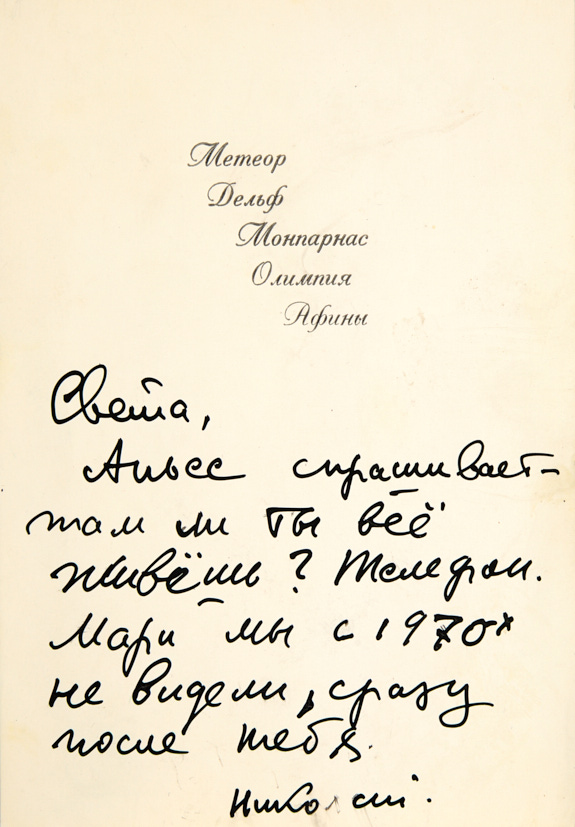 Метеор
Дельф
Монпарнас
Олимпия
Афины
Света,
Аньес спрашивает-
там ли ты всё
живёшь? Телефон.
Мари мы с 1970х
не видели, сразу
после тебя.